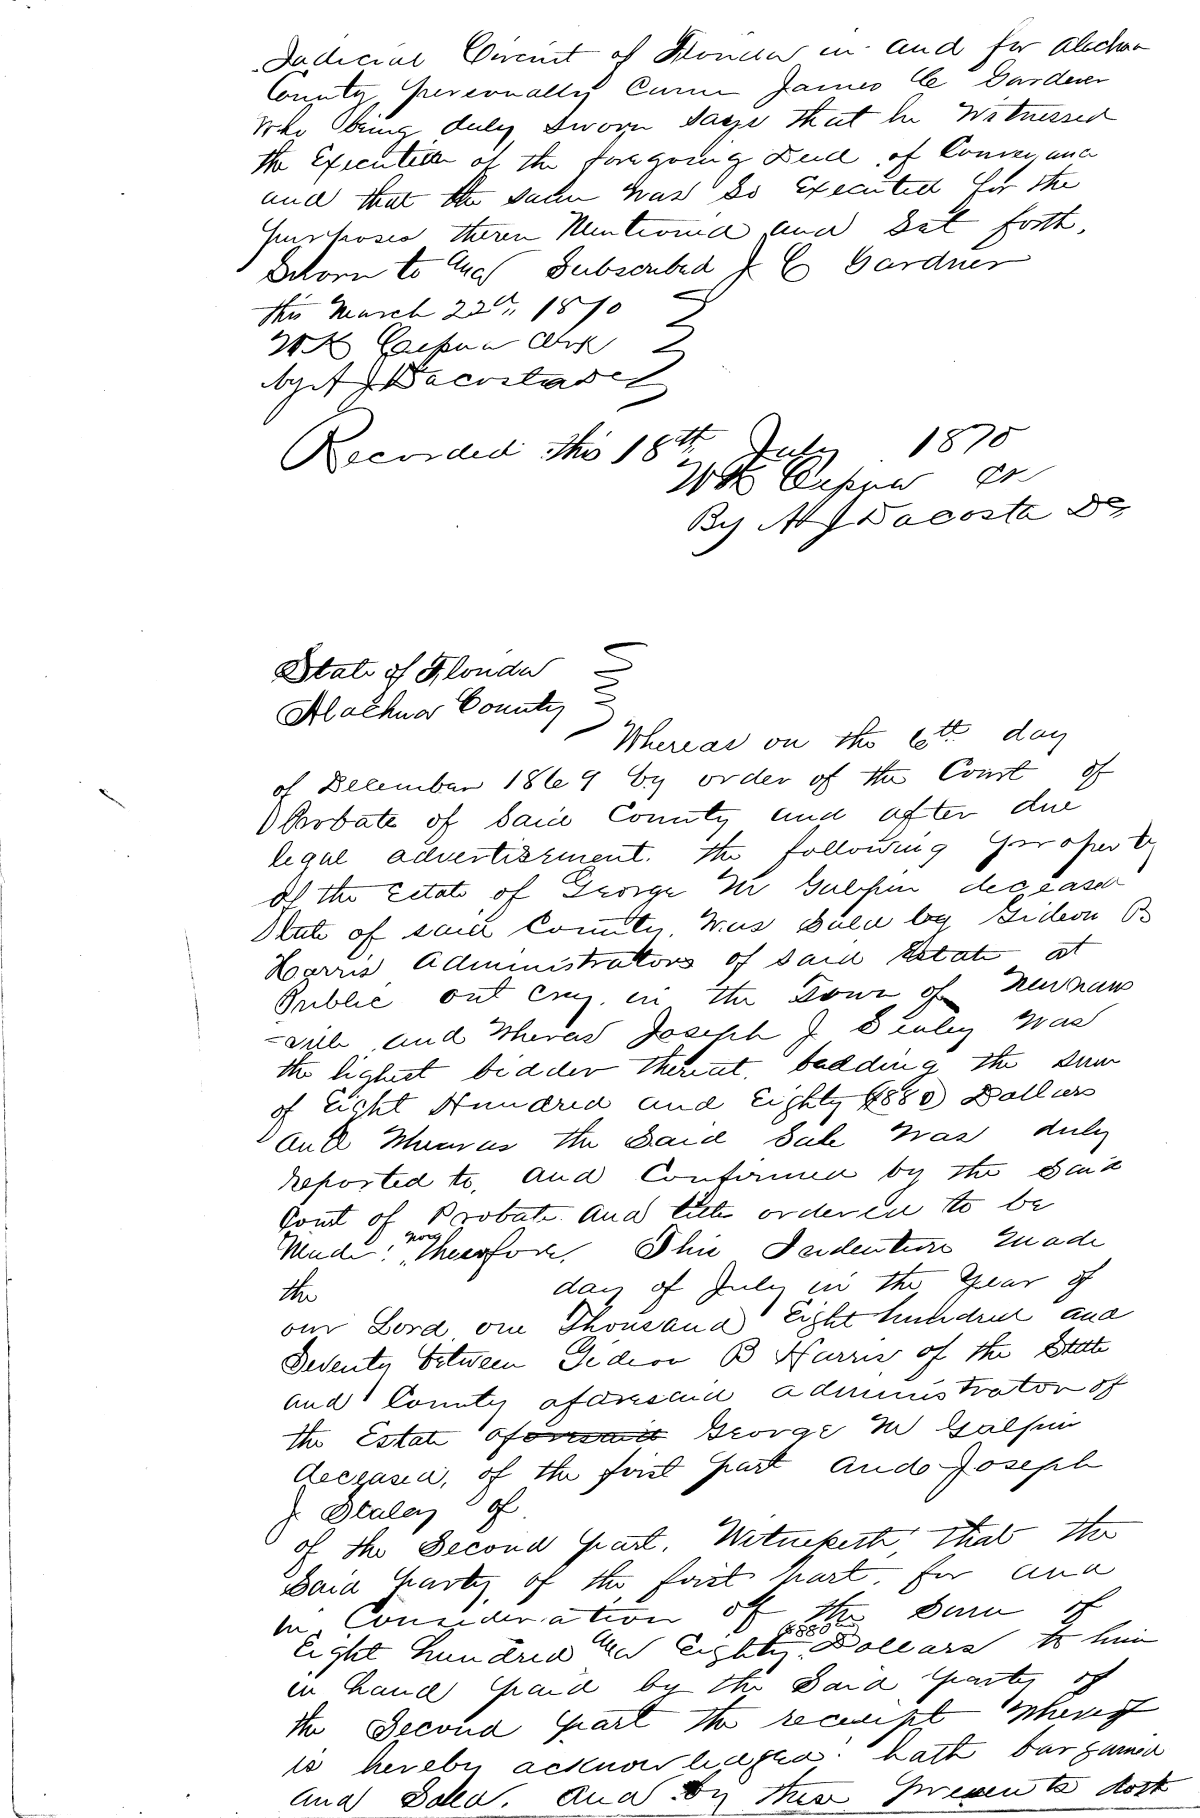 Judicial Circuit of Florida in and for Alachua
County, personally came James C Gardner
Who being duly Sworn Says that he Witnessed
the Execution of the foregoing Deed of Conveyance
and that the same was So Executed for the
purposes therein Mentioned and Set forth,
Sworn to and Subscribed J C Gardner
this March 22d, 1870
W K Cessna Clrk
by A J Dacosta D C
Recorded this 18th July 1870
W K Cessna Cr
By A J Dacosta DC
State of Florida
Alachua County
Whereas on the 6th day
of December 1869 by order of the Court of
Probate of Said County and after due
legal advertisement. the following property
of the Estate of George M Galphin deceased
late of said County. Was Sold by Gideon B
Harris Administrators of said Estate at
Public out cry. in the Town of Newnans
-ville and Wheras Joseph J Staley Was
the highest bidder thereat. badding the Sum
of Eight Hundred and Eighty ($880) Dollars
and Whereas the Said Sale Was duly
reported to, and Confirmed by the Said
Court of Probate and title ordered to be
Made: now Therefore. This Indenture Made
the day of July in the Year of
our Lord one Thousand Eight hundred and
Seventy between Gideon B Harris of the State
and County aforesaid administrator of
the Estate of George M Galphin
deceased, of the first part and Joseph
J Staley of
of the Second part. Witnesseth, that the
Said party of the first part. for and
in Consideration of the Sum of
Eight hundred and Eighty ($880) Dollars to him
in hand paid by the Said party of
the Second part the receipt Whereof
is hereby acknowledged: hath bargained
and Sold. And by these presents doth